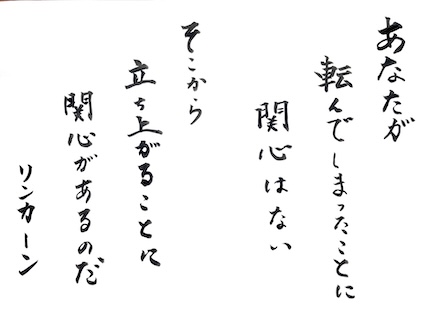 あなたが
転んでしまったことに
関心はない
そこから
立ち上がることに
関心があるのだ
リンカーン